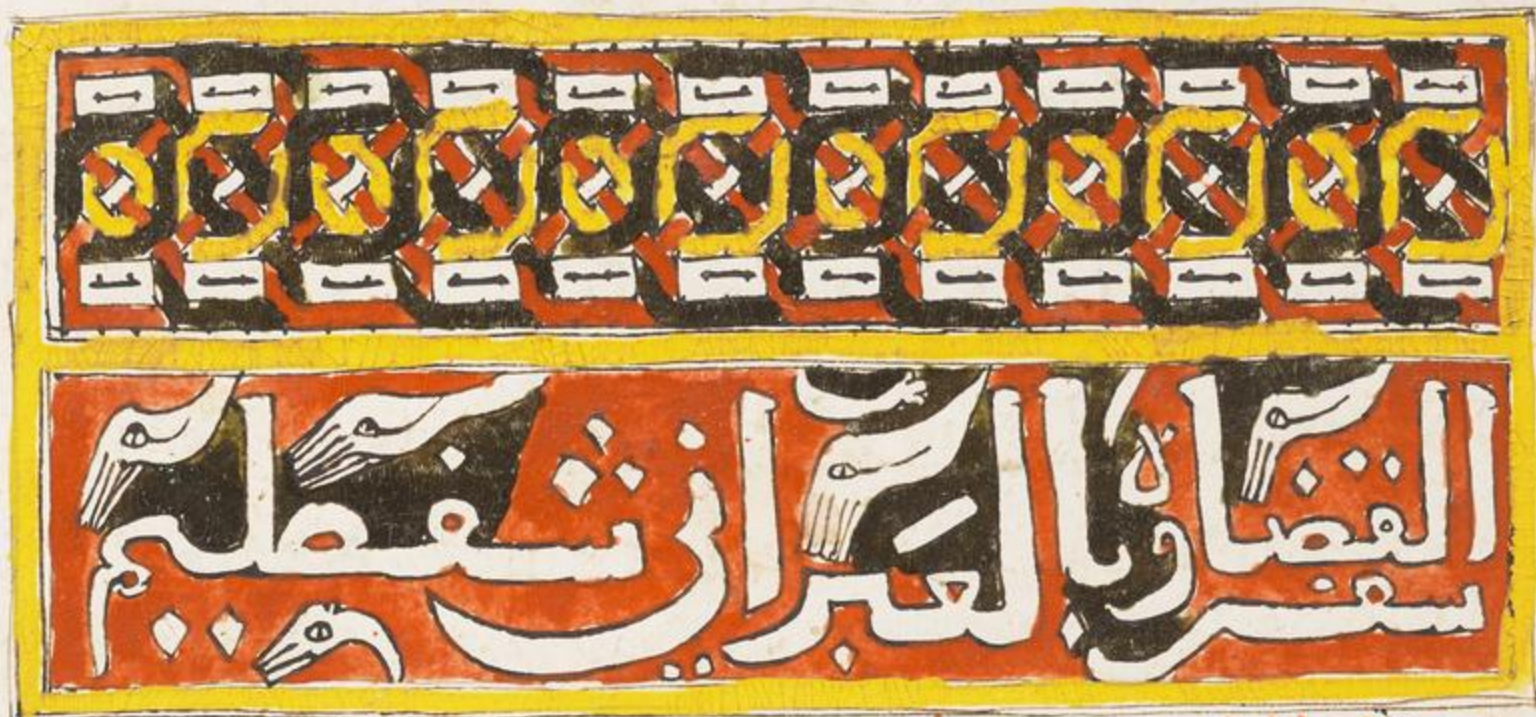 سفر القضاه وبالعبراني شفطيم